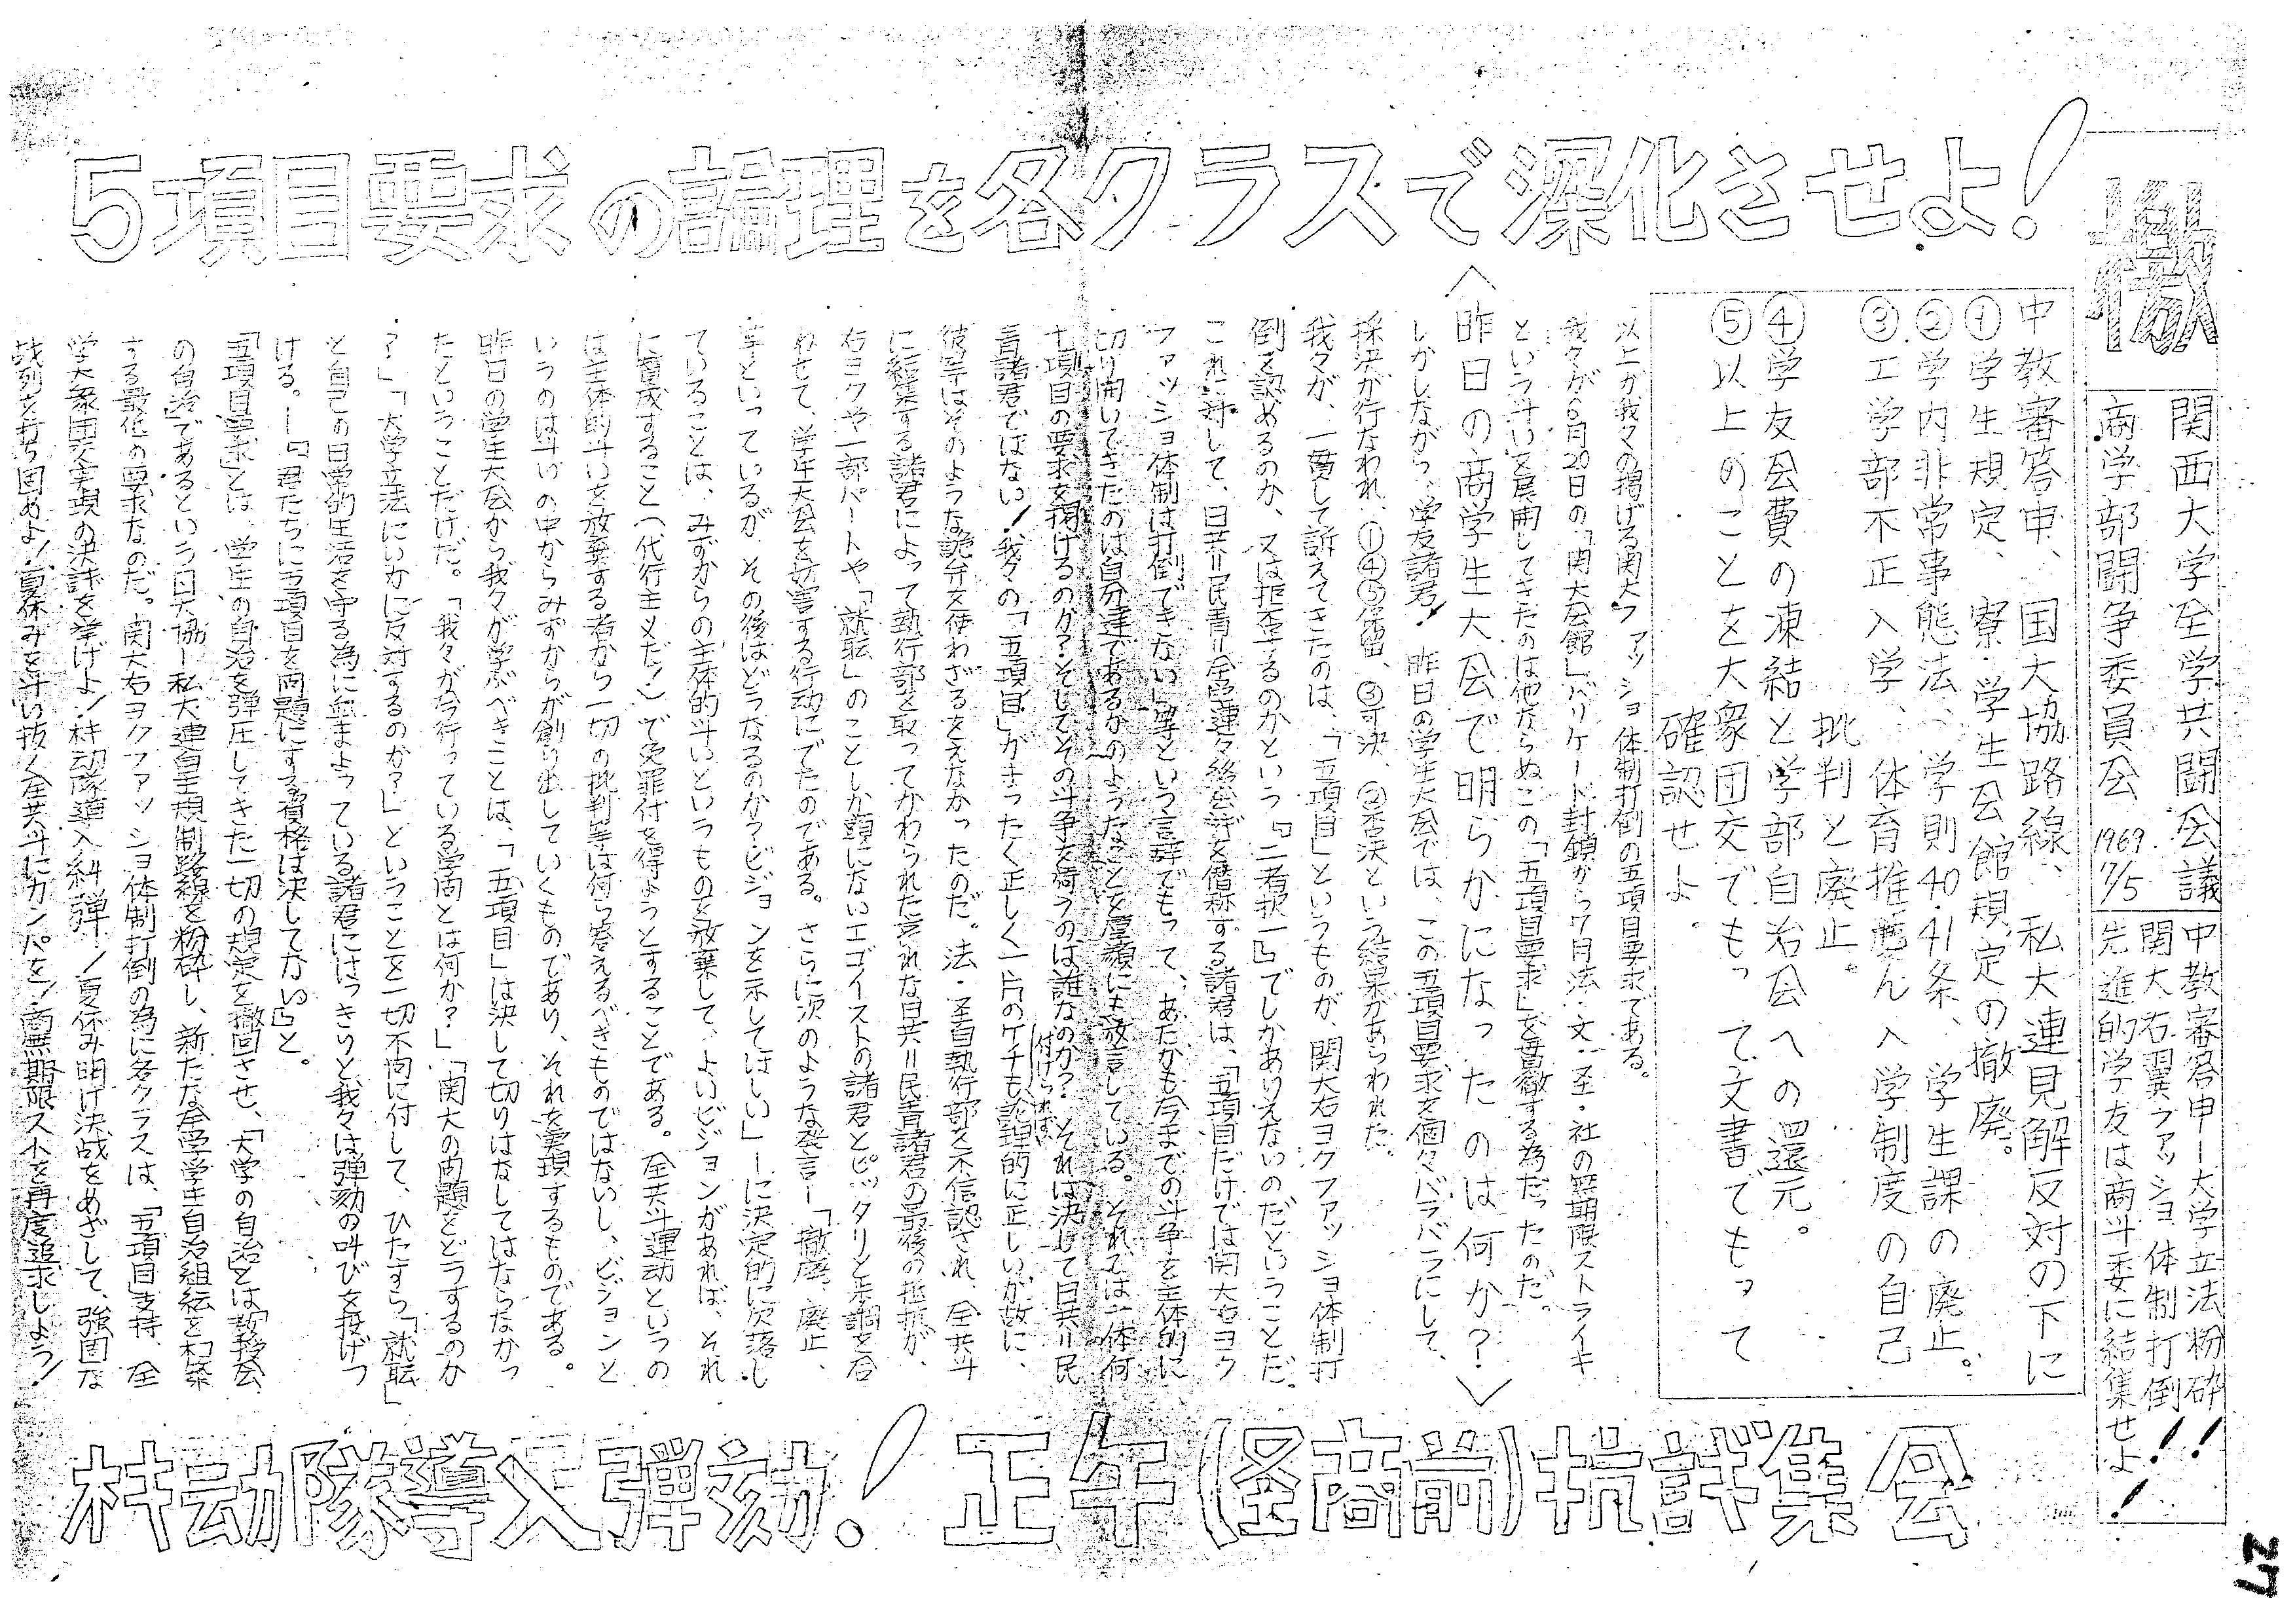 檄
関西大学全学共闘会議
商学部闘争委員会 1969 7/5
中教審答申ー大学立法粉砕!!
関大右翼ファッショ体制打倒
先進的学友は商斗委に結集せよ!
5項目要求の論理を各クラスで深化させよ!
中教審答申、国大協路線、私大連見解反対の下に
①学生規定、寮・学生会館規定の撤廃。
②学内非常事態法、学則40・41条、学生課の廃止。
③工学部不正入学、体育推せん入学制度の自己
批判と廃止。
④学友会費の凍結と学部自治会への還元。
⑤以上のことを大衆団交でもって文書でもって
確認せよ
以上が我々の掲げる関大ファッショ体制打倒の五項目要求である。
我々が6月20日の「関大会館」バリケード封鎖から7月法・文・圣・社の無期限ストライキ
という斗いを展開してきたのは他ならぬこの「五項目要求」を貫徹する為だったのだ。
〈昨日の商学生大会で明らかになったのは何か?〉
しかしながら、学友諸君!昨日の学生大会では、この五項目要求を個々バラバラにして、
採決が行なわれ、①④⑤保留、③可決、②否決という結果があらわれた。
我々が、一貫して訴えてきたのは、「五項目」というものが、関大右ヨクファッショ体制打
倒を認めるのか、又は拒否するのかという『二者択一』でしかありえないのだということだ。
これに対して、日共=民青=全学連々絡会議を僭称する諸君は、「五項目だけでは関大右ヨク
ファッショ体制は打倒できない」等という言辞でもって、あたかも今までの斗争を主体的に
切り開いてきたのは自分達であるかのようなことを厚顔にも放言している。それでは一体何
七項目の要求を掲げるのか?そしてその斗争を荷うのは誰なのか?それは決して日共=民
青諸君ではない!我々の「五項目」がまったく正しく一片のケチも付けられぬ論理的に正しいが故に、
彼等はそのような詭弁を使わざるをえなかったのだ。法・圣自執行部を不信認され、全共斗
に結集する諸君によって執行部を取ってかわられた哀れな日共=民青諸君の最後の抵抗が、
右ヨクや一部パートや「就転」のことしか頭にないエゴイストの諸君とピッタリと歩調を合
わせて、学生大会を妨害する行動にでたのである。さらに次のような発言ー「撤廃、廃止、
等といっているが、その後はどうなるのか?ビジョンを示してほしい」ーに決定的に欠落し
ていることは、みずからの主体的斗いというものを放棄して、よいビジョンがあれば、それ
に賛成すること(代行主义だ!)で免罪付を得ようとすることである。全共斗運动というの
は主体的斗いを放棄する者から一切の批判等は何ら答えるべきものではないし、ビジョンと
いうのは斗いの中からみずからが創り出していくものであり、それを実現するものである。
昨日の学生大会から我々が学ぶべきことは、「五項目」は決して切りはなしてはならなかっ
たということだけだ。「我々が今行っている学問とは何か?」「関大の問題をどうするのか
?」「大学立法にいかに反対するのか?」ということを一切不問に付して、ひたすら「就転」
と自己の日常的生活を守る為に血まよっている諸君にはっきりと我々は弾劾の叫びを投げつ
ける。ー『君たちに五項目を問題にする資格は決してない』と。
「五項目要求」とは、学生の自治を弾圧してきた一切の規定を撤回させ、「大学の自治」とは「教授会
の自治」であるという国大協ー私大連自主規制路線を粉砕し、新たな全学学生自治組织を构築
する最低の要求なのだ。関大右ヨクファッショ体制打倒の為に各クラスは、「五項目」支持、全
学大衆団交実現の決議を挙げよ!机动隊導入糾弾!夏休み明け決战をめざして、強固な
战列を打ち固めよ!夏休みを斗い抜く全共斗にカンパを!商無期限ストを再度追求しよう!
机动隊導入弾劾!正午(圣商前)抗議集会
27